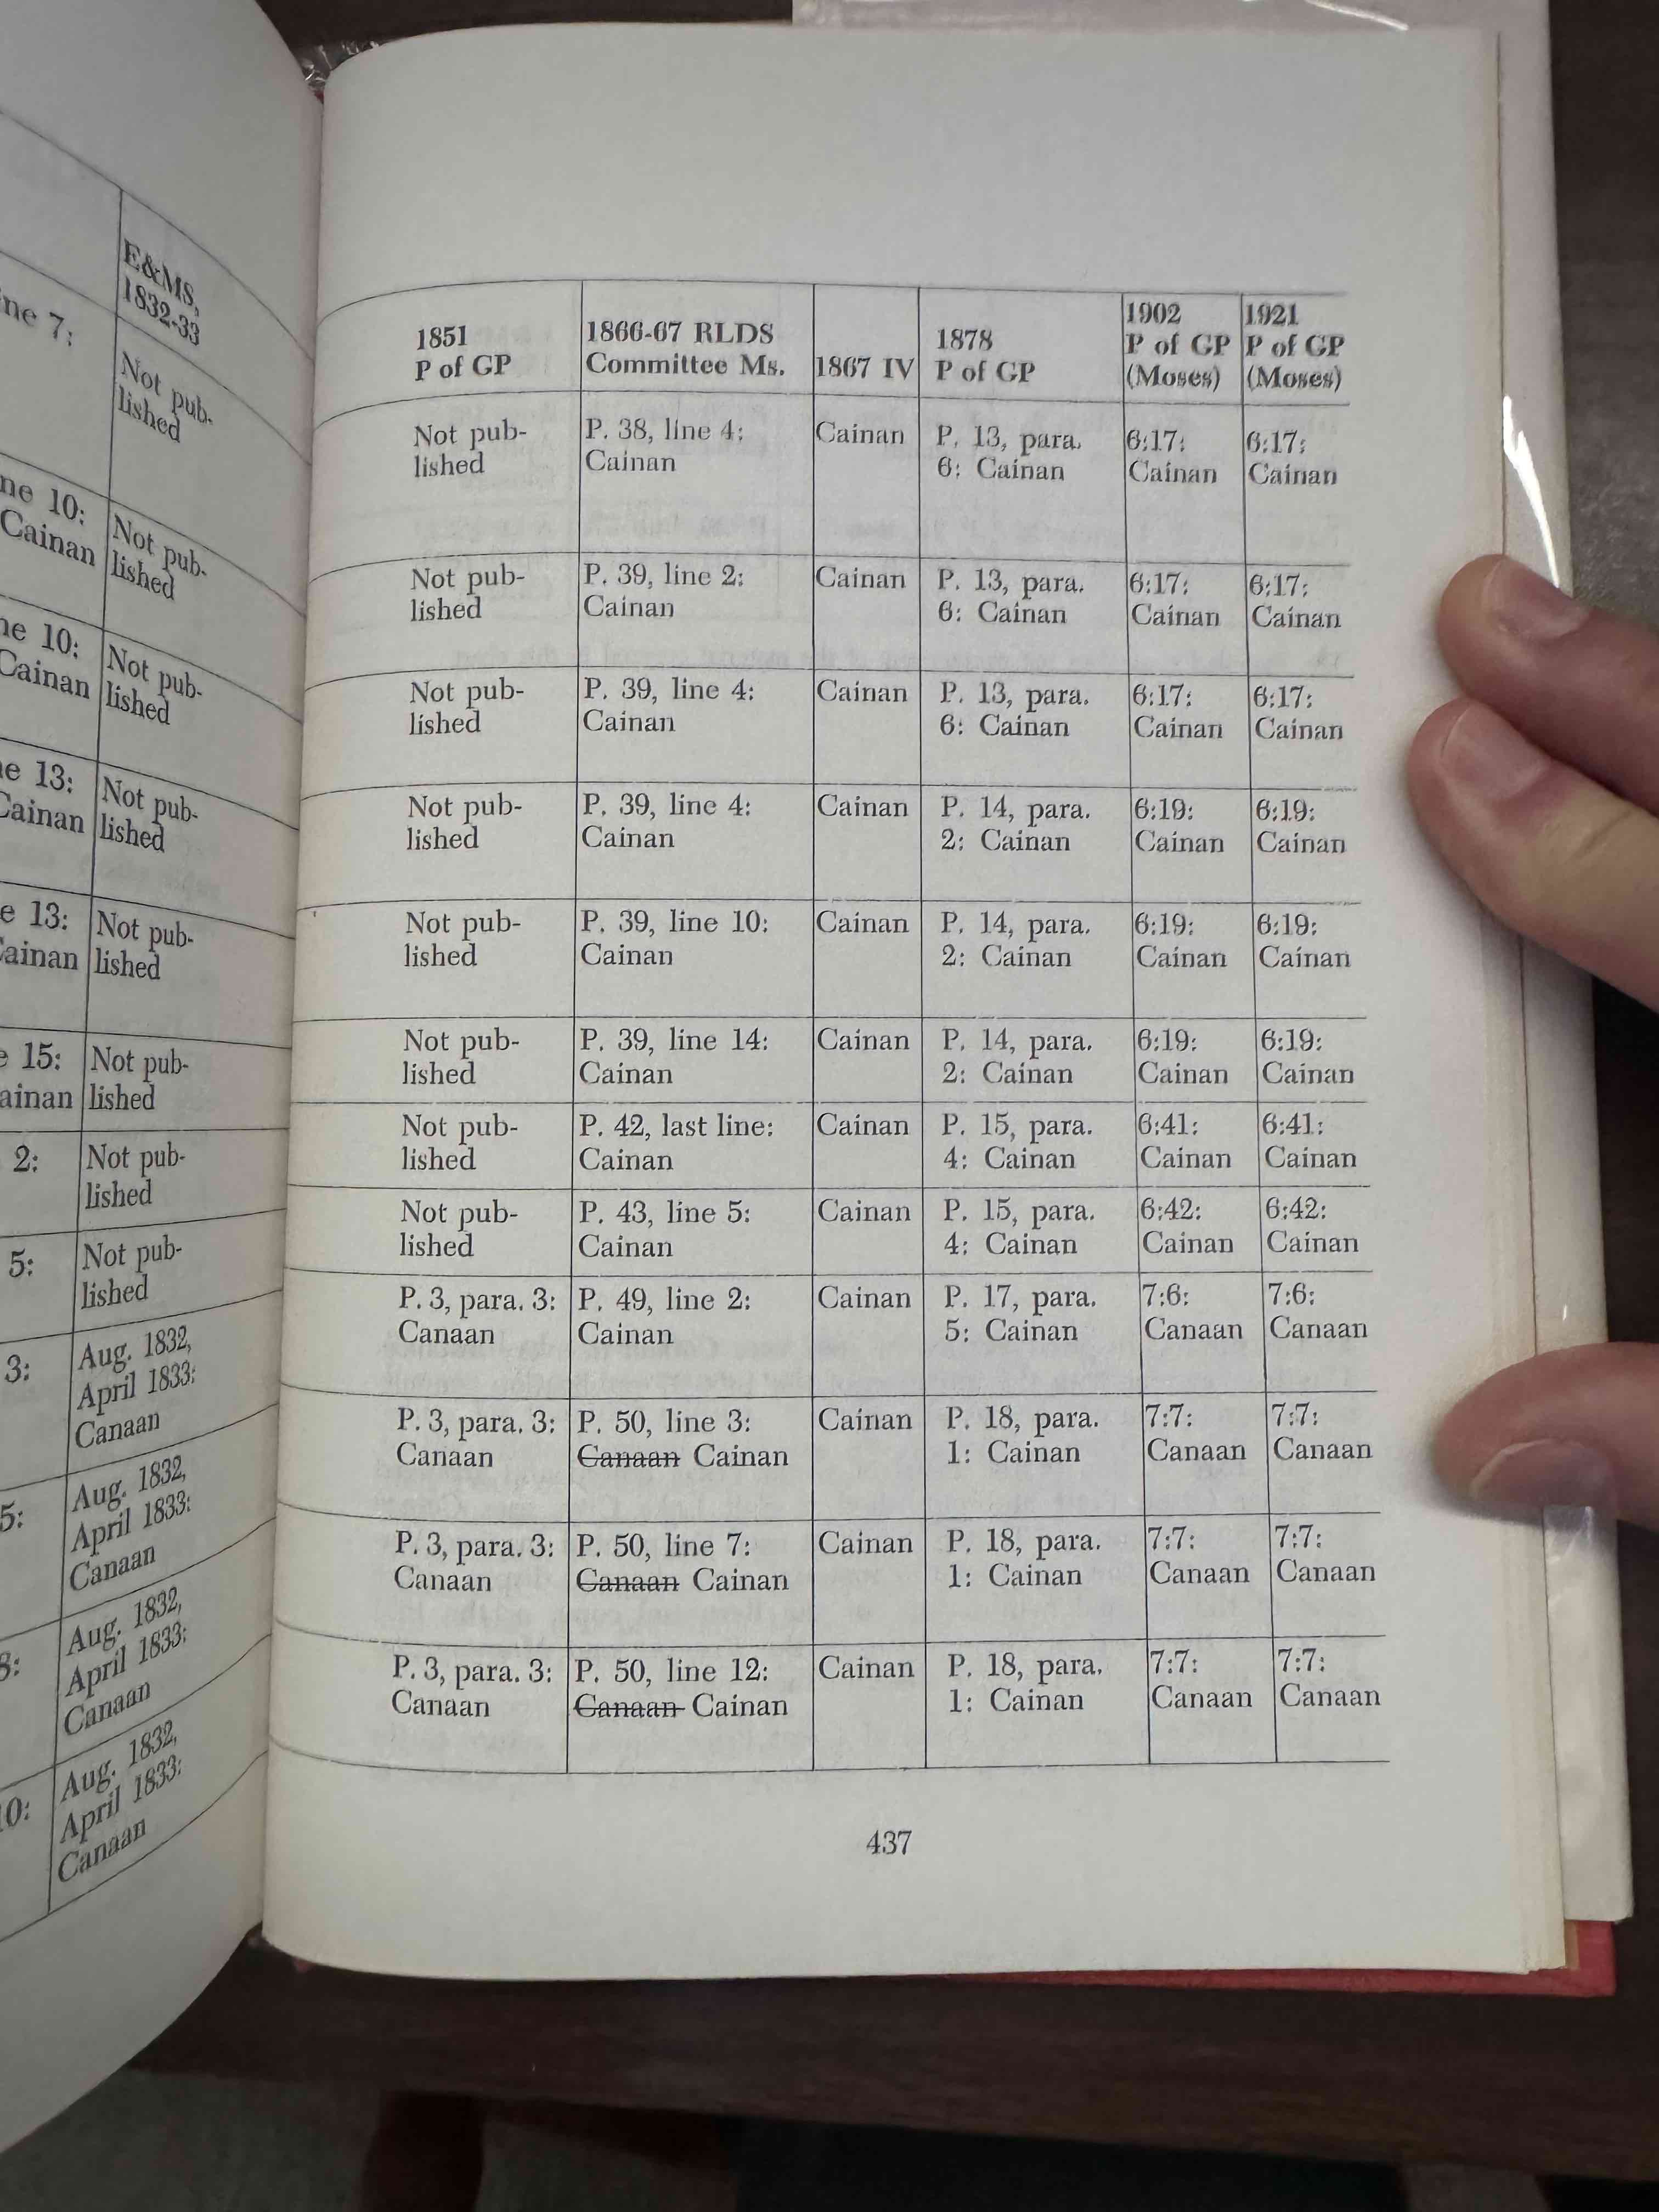 E&MS,
1832-33
ne 7:
Not pub-
lished
ne 10:
Cainan
Not pub-
lished
ne 10:
Cainan
Not pub-
lished
e 13:
Cainan
Not pub-
lished
e 13:
ainan
Not pub-
lished
15:
ainan
Not pub-
lished
2:
Not pub-
lished
5:
Not pub-
lished
3:
Aug. 1832,
April 1833:
Canaan
5:
Aug. 1832,
April 1833:
Canaan
8:
Aug. 1832,
April 1833:
Canaan
0:
Aug. 1832,
April 1833:
Canaan
1851
P of GP
1866-67 RLDS
Committee Ms.
1867 IV
1878
P of GP
1902
P of GP
(Moses)
1921
P of GP
(Moses)
Not pub-
lished
P. 38, line 4:
Cainan
Cainan
P. 13, para.
6: Cainan
6:17:
Cainan
6:17:
Cainan
Not pub-
lished
P. 39, line 2:
Cainan
Cainan
P. 13, para.
6: Cainan
6:17:
Cainan
6:17:
Cainan
Not pub-
lished
P. 39, line 4:
Cainan
Cainan
P. 13, para.
6: Cainan
6:17:
Cainan
6:17:
Cainan
Not pub-
lished
P. 39, line 4:
Cainan
Cainan
P. 14, para.
2: Cainan
6:19:
Cainan
6:19:
Cainan
Not pub-
lished
P. 39, line 10:
Cainan
Cainan
P. 14, para.
2: Cainan
6:19:
Cainan
6:19:
Cainan
Not pub-
lished
P. 39, line 14:
Cainan
Cainan
P. 14, para.
2: Cainan
6:19:
Cainan
6:19:
Cainan
Not pub-
lished
P. 42, last line:
Cainan
Cainan
P. 15, para.
4: Cainan
6:41:
Cainan
6:41:
Cainan
Not pub-
lished
P. 43, line 5:
Cainan
Cainan
P. 15, para.
4: Cainan
6:42:
Cainan
6:42:
Cainan
P. 3, para. 3:
Canaan
P. 49, line 2:
Cainan
Cainan
P. 17, para.
5: Cainan
7:6:
Canaan
7:6:
Canaan
P. 3, para. 3:
Canaan
P. 50, line 3:
Canaan Cainan
Cainan
P. 18, para.
1: Cainan
7:7:
Canaan
7:7:
Canaan
P. 3, para. 3:
Canaan
P. 50, line 7:
Canaan Cainan
Cainan
P. 18, para.
1: Cainan
7:7:
Canaan
7:7:
Canaan
P. 3, para. 3:
Canaan
P. 50, line 12:
Canaan Cainan
Cainan
P. 18, para.
1: Cainan
7:7:
Canaan
7:7:
Canaan
437